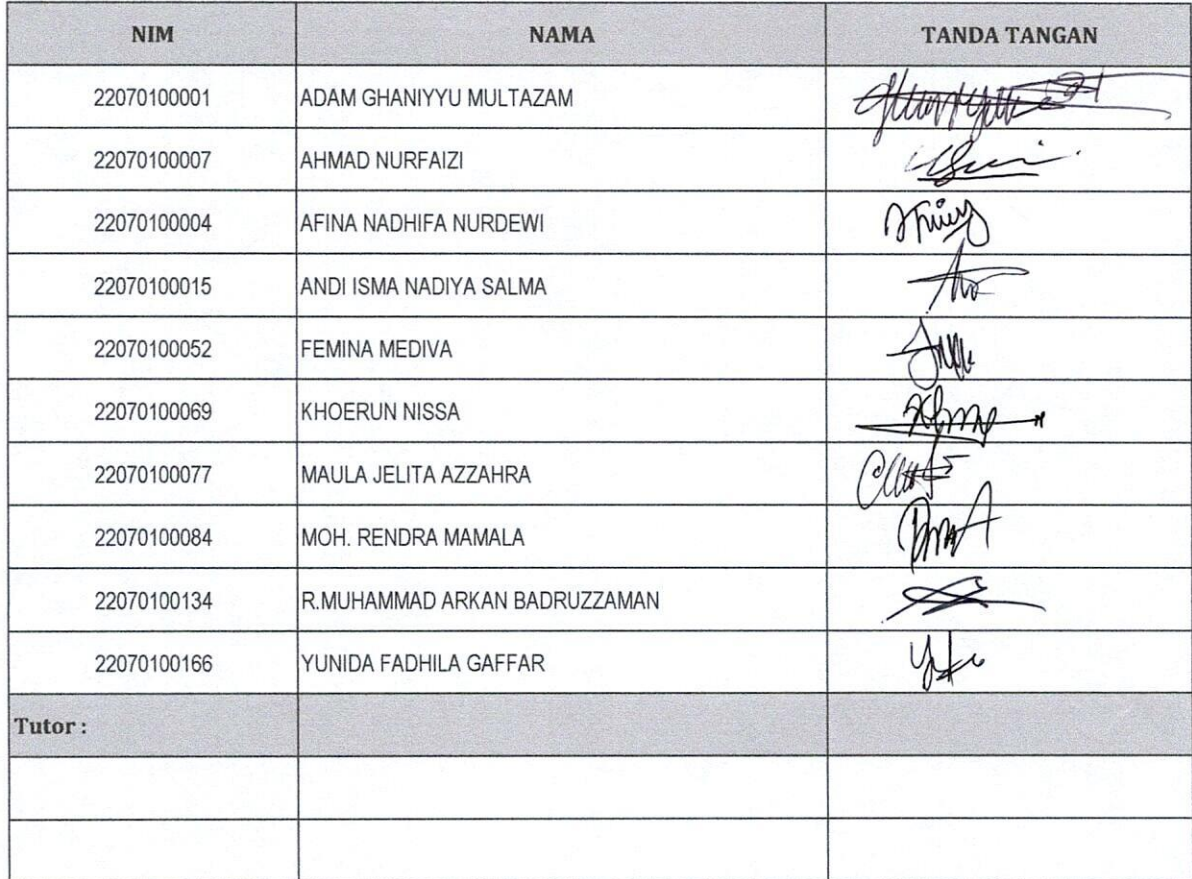 NIM NAMA TANDA TANGAN
22070100001 ADAM GHANIYYU MULTAZAM
22070100007 AHMAD NURFAIZI
22070100004 AFINA NADHIFA NURDEWI
22070100015 ANDI ISMA NADIYA SALMA
22070100052 FEMINA MEDIVA
22070100069 KHOERUN NISSA
22070100077 MAULA JELITA AZZAHRA
22070100084 MOH. RENDRA MAMALA
22070100134 R.MUHAMMAD ARKAN BADRUZZAMAN
22070100166 YUNIDA FADHILA GAFFAR
Tutor :